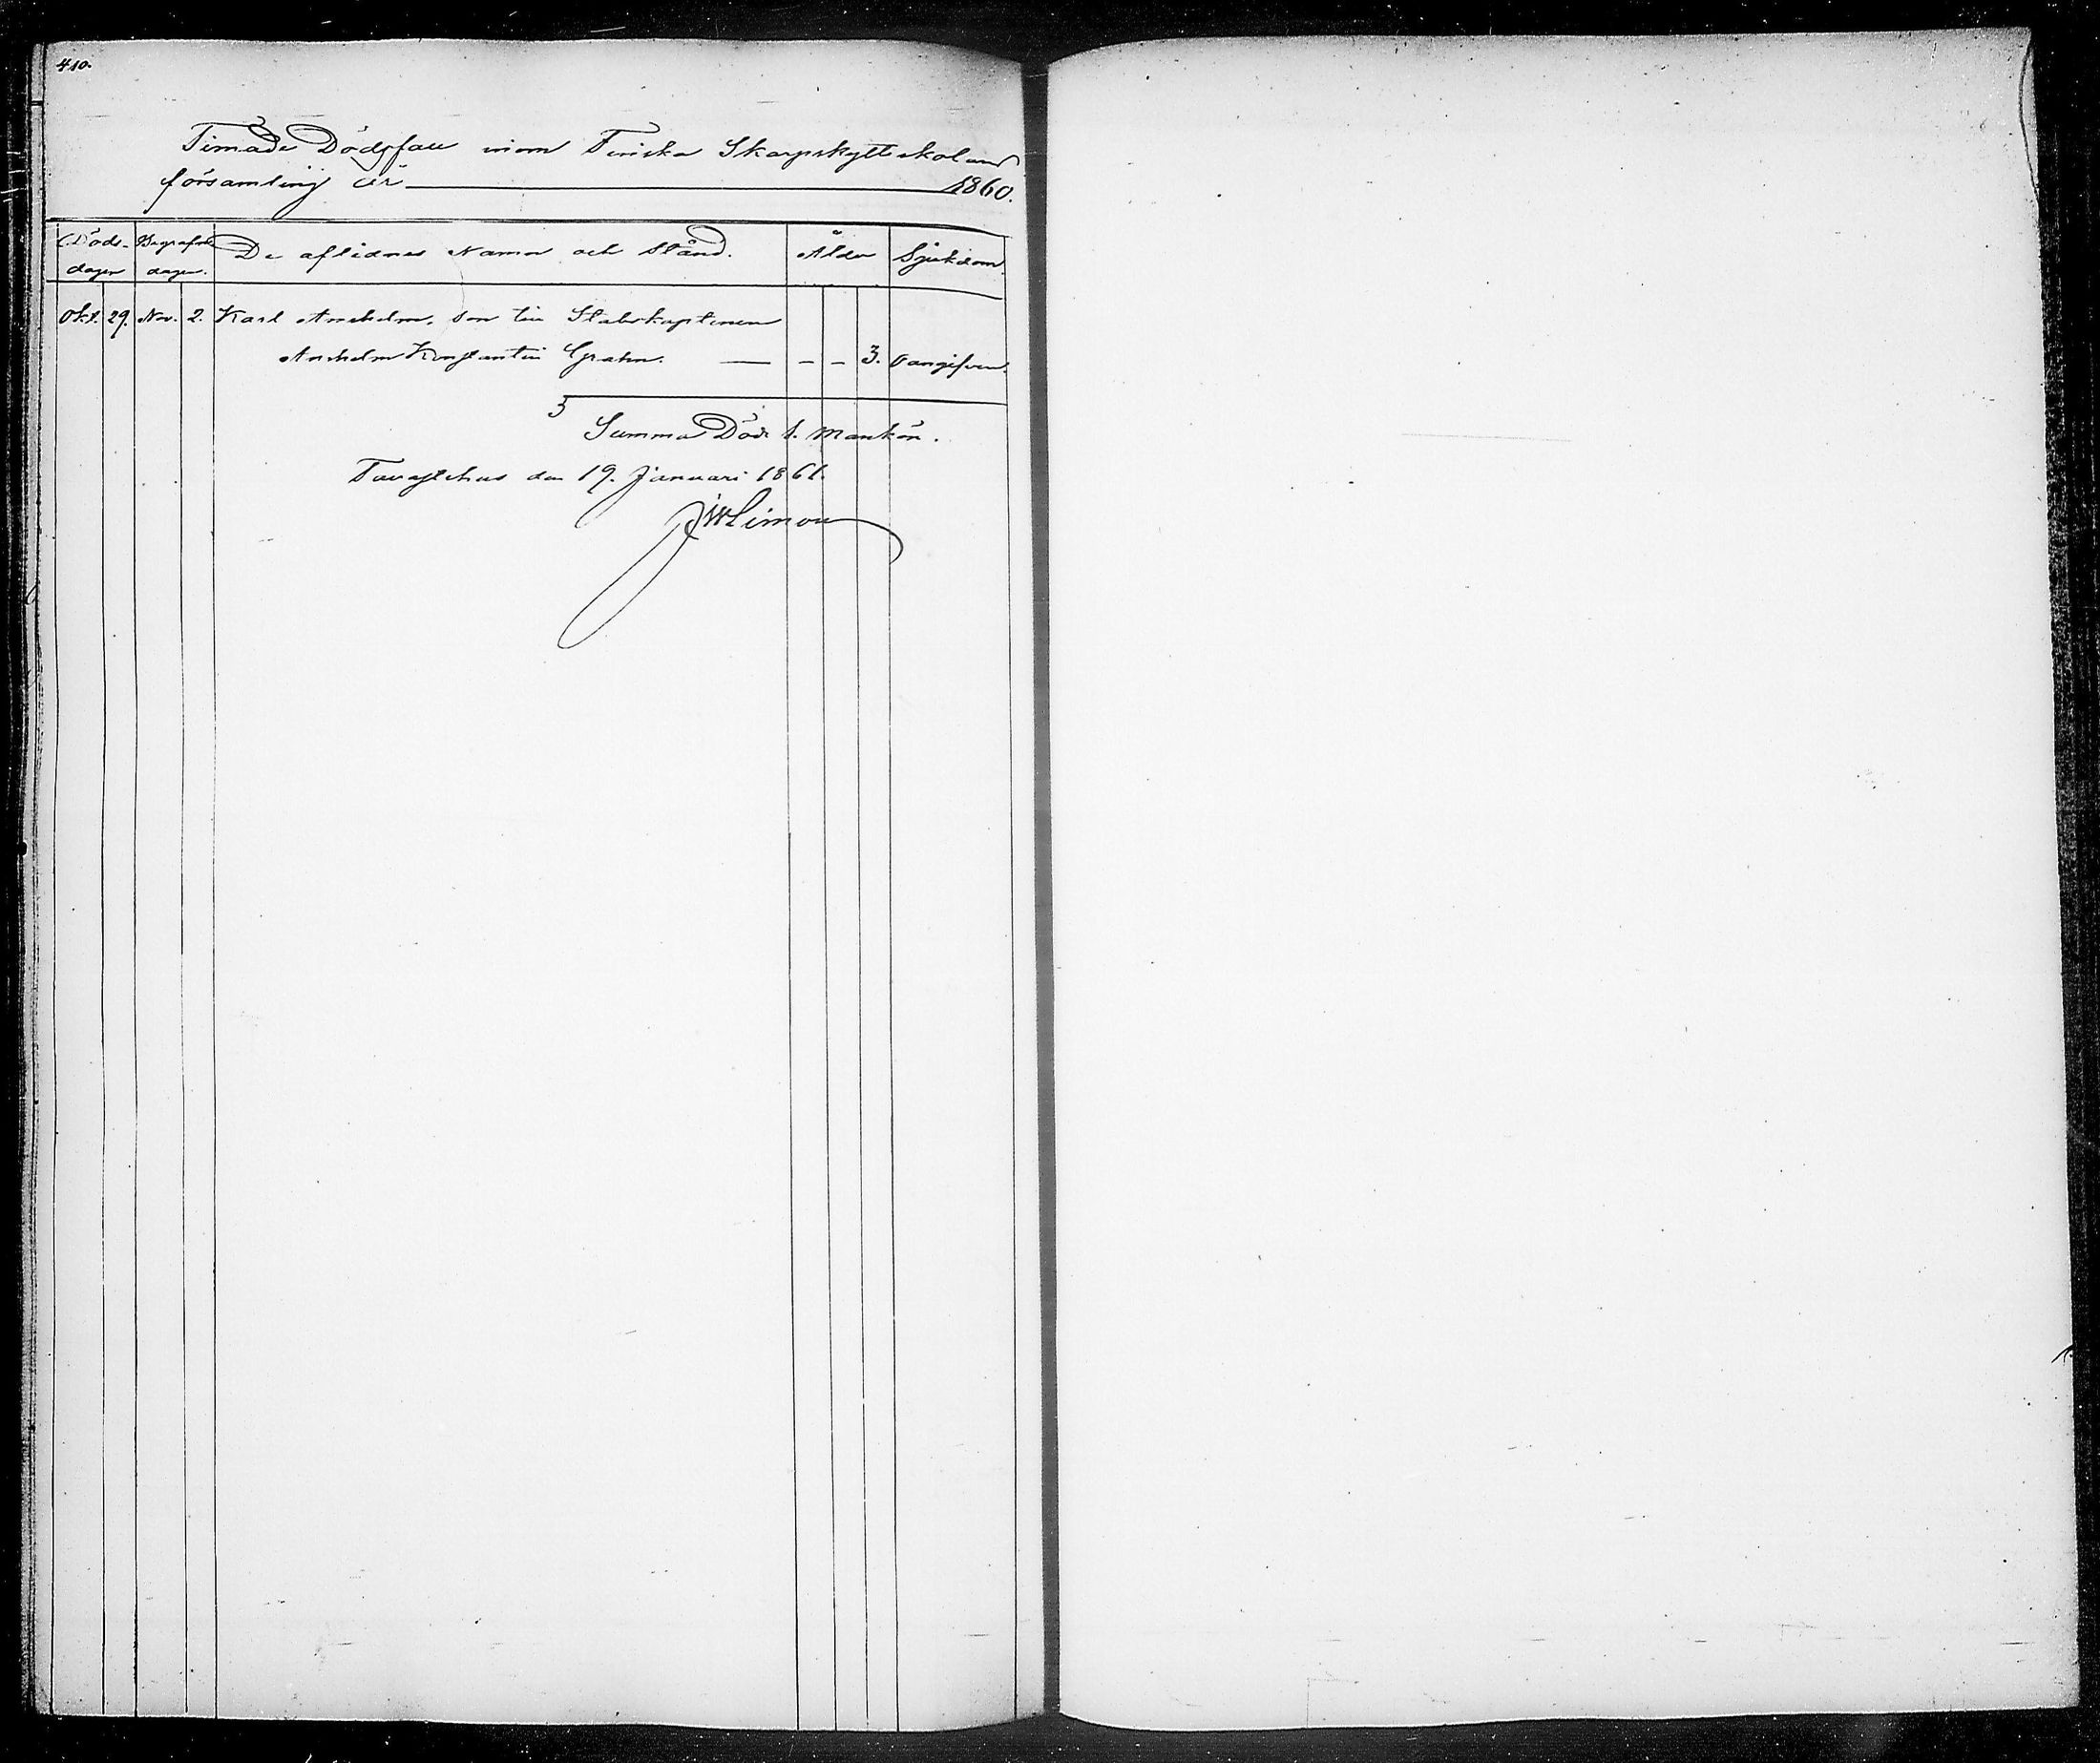 410.
Timade Dödsfall inom Finska Skarpskytteskolans
församling år 1860.
Döds- Begrafn. De aflidnes Namn och Stånd. Ålder Sjukdom.
dagen dagen.
Okt. 29. Nov. 2. Karl Anshelm, son till Stabskaptenen
Anshelm Konstantin Grahn. — - - 3. Oangifven.
3
Summa Död 1. Mankön.
Tavastehus den 19. Januari 1861.